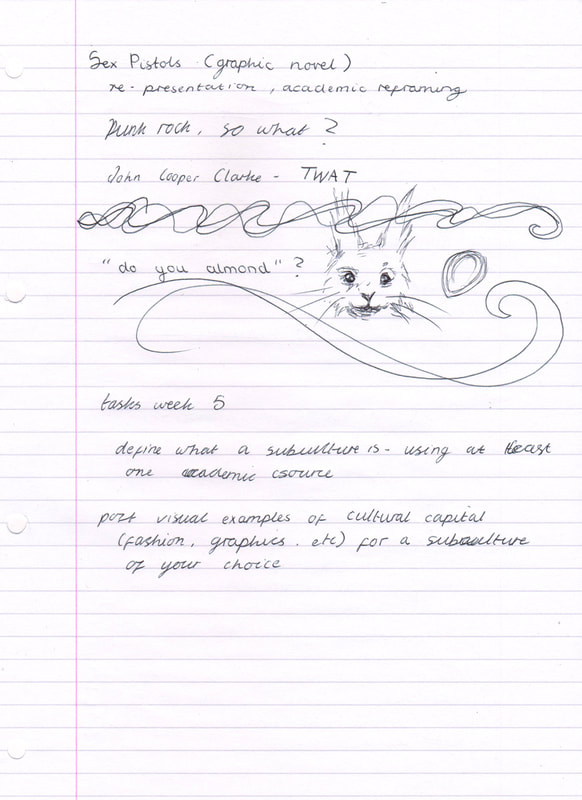 Sex Pistols (graphic novel)
re-presentation, academic reframing
Punk rock, so what?
John Cooper Clarke - TWAT
"do you almond"?
tasks week 5
define what a subculture is - using at least
one academic source
post visual examples of cultural capital
(fashion, graphics. etc) for a subculture
of your choice